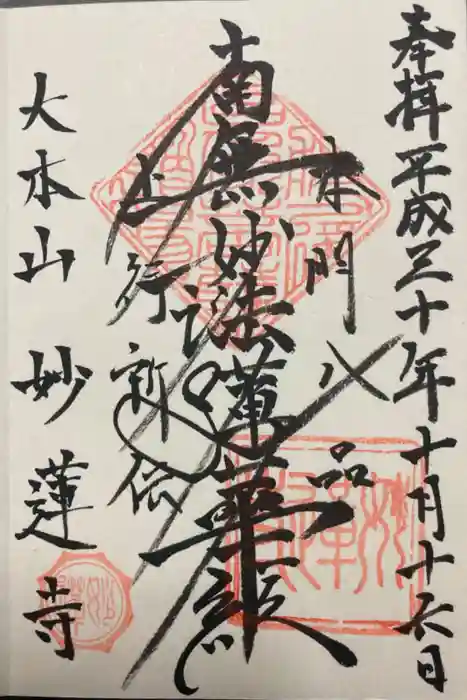 奉拝平成三十年十月十六日
本門八品
南無妙法蓮華経
上行
大本山 妙蓮寺